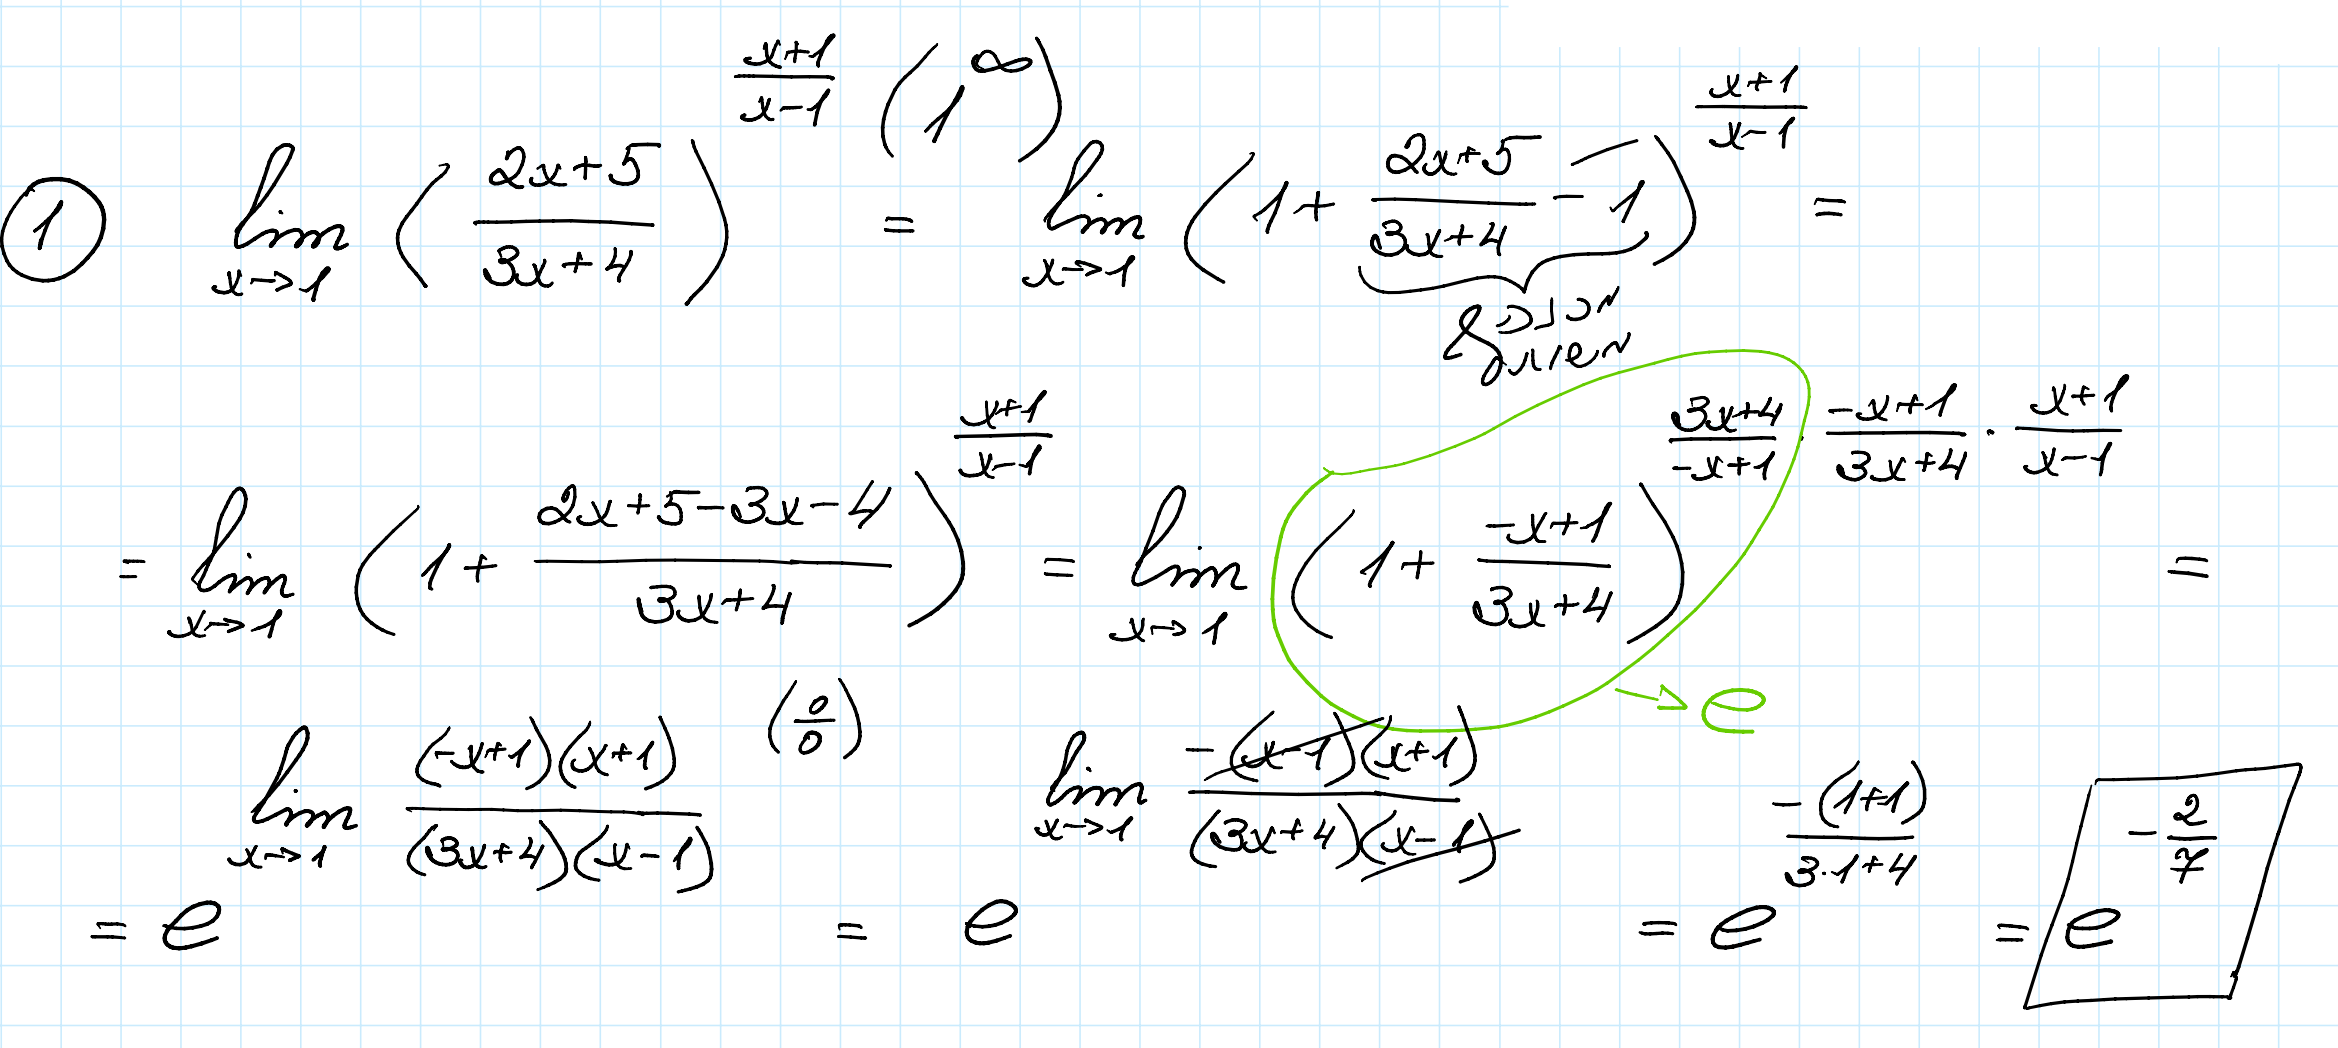 ① lim x→1 ( (2x+5)/(3x+4) )^((x+1)/(x−1)) (1^∞) = lim x→1 ( 1 + (2x+5)/(3x+4) − 1 )^((x+1)/(x−1)) =
= lim x→1 ( 1 + (2x+5−3x−4)/(3x+4) )^((x+1)/(x−1)) = lim x→1 ( 1 + (−x+1)/(3x+4) )^((3x+4)/(−x+1) · (−x+1)/(3x+4) · (x+1)/(x−1)) =
→ e
= e^(lim x→1 ((−x+1)(x+1))/((3x+4)(x−1))) (0/0) = e^(lim x→1 (−(x−1)(x+1))/((3x+4)(x−1))) = e^((−(1+1))/(3·1+4)) = e^(−2/7)